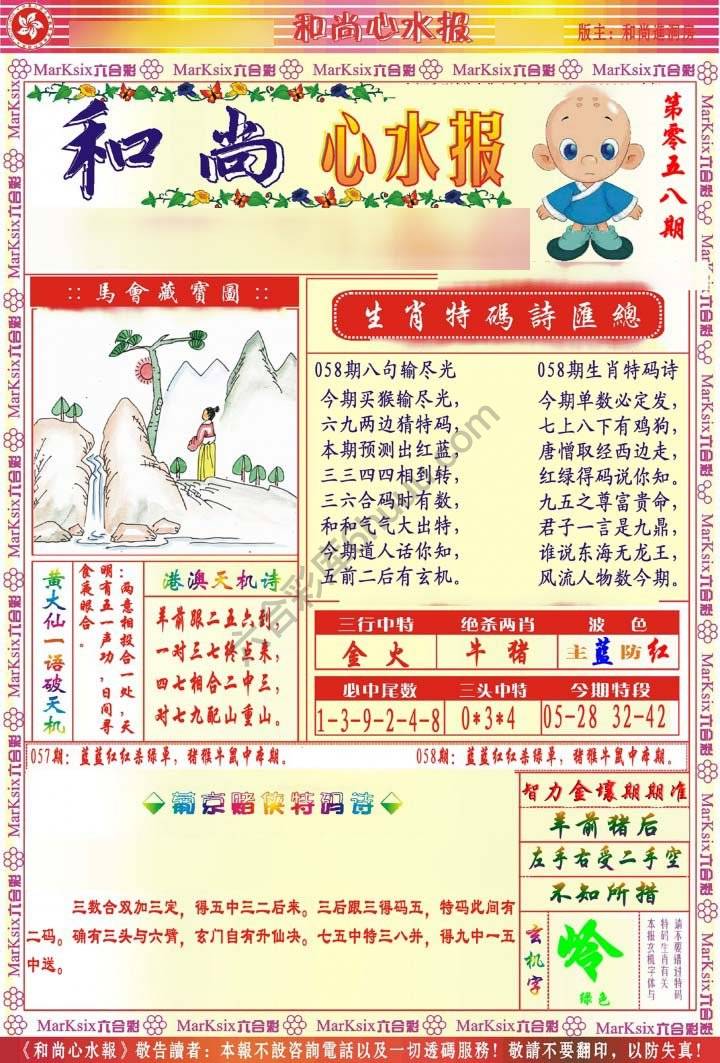 和尚心水报
版主：和尚進洞房
MarKsix六合彩 MarKsix六合彩 MarKsix六合彩 MarKsix六合彩 MarKsix六合彩
和尚 心水报
第零五八期
::馬會藏寶圖::
生肖特碼詩匯總
058期八句输尽光
今期买猴输尽光，
六九两边猜特码，
本期预测出红蓝，
三三四四相到转，
三六合码时有数，
和和气气大出特，
今期道人话你知，
五前二后有玄机。
058期生肖特码诗
今期单数必定发，
七上八下有鸡狗，
唐憎取经两边走，
红绿得码说你知。
九五之尊富贵命，
君子一言是九鼎，
谁说东海无龙王，
风流人物数今期。
黄大仙一语破天机
：两意相投合一处，天
明有五一声功，日间寻
食夜眼合。
港澳天机诗
羊前跟二五六到，
一对三七终点来，
四七相合二中三，
对七九配山重山。
三行中特 绝杀两肖 波色
金火 牛猪 主蓝防红
必中尾数 三头中特 今期特段
1-3-9-2-4-8 0*3*4 05-28 32-42
057期：蓝蓝红红杀绿单，猪猴牛鼠中本期。 058期：蓝蓝红红杀绿单，猪猴牛鼠中本期。
葡京赌侠特码诗
三数合双加三定，得五中三二后来。三后跟三得码五，特码此间有
二码。确有三头与六臂，玄门自有升仙决。七五中特三八并，得九中一五
中送。
智力金壤期期准
羊前猪后
左手右受二手空
不知所措
玄机字
岭
绿色
请不要错过特码
特码生肖有关
本报玄机字体与
MarKsix六合彩 MarKsix六合彩 MarKsix六合彩 MarKsix六合彩 MarKsix六合彩
《和尚心水報》敬告讀者：本報不設咨詢電話以及一切透碼服務！敬請不要翻印，以防失真！